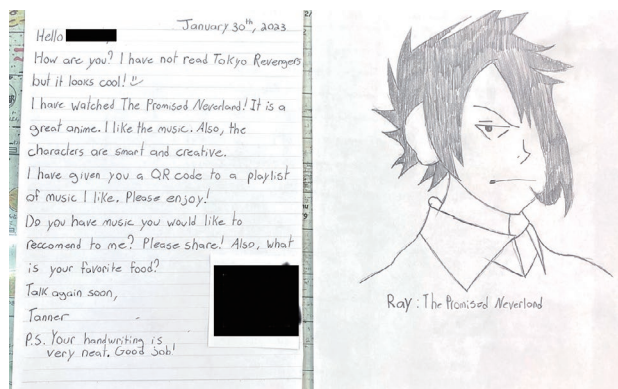 January 30th, 2023
Hello
How are you? I have not read Tokyo Revengers
but it looks cool!
I have watched The Promised Neverland! It is a
great anime. I like the music. Also, the
characters are smart and creative.
I have given you a QR code to a playlist
of music I like. Please enjoy!
Do you have music you would like to
reccomend to me? Please share! Also, what
is your favorite food?
Talk again soon,
Tanner
P.S. Your handwriting is
very neat. Good job!
Ray: The Promised Neverland